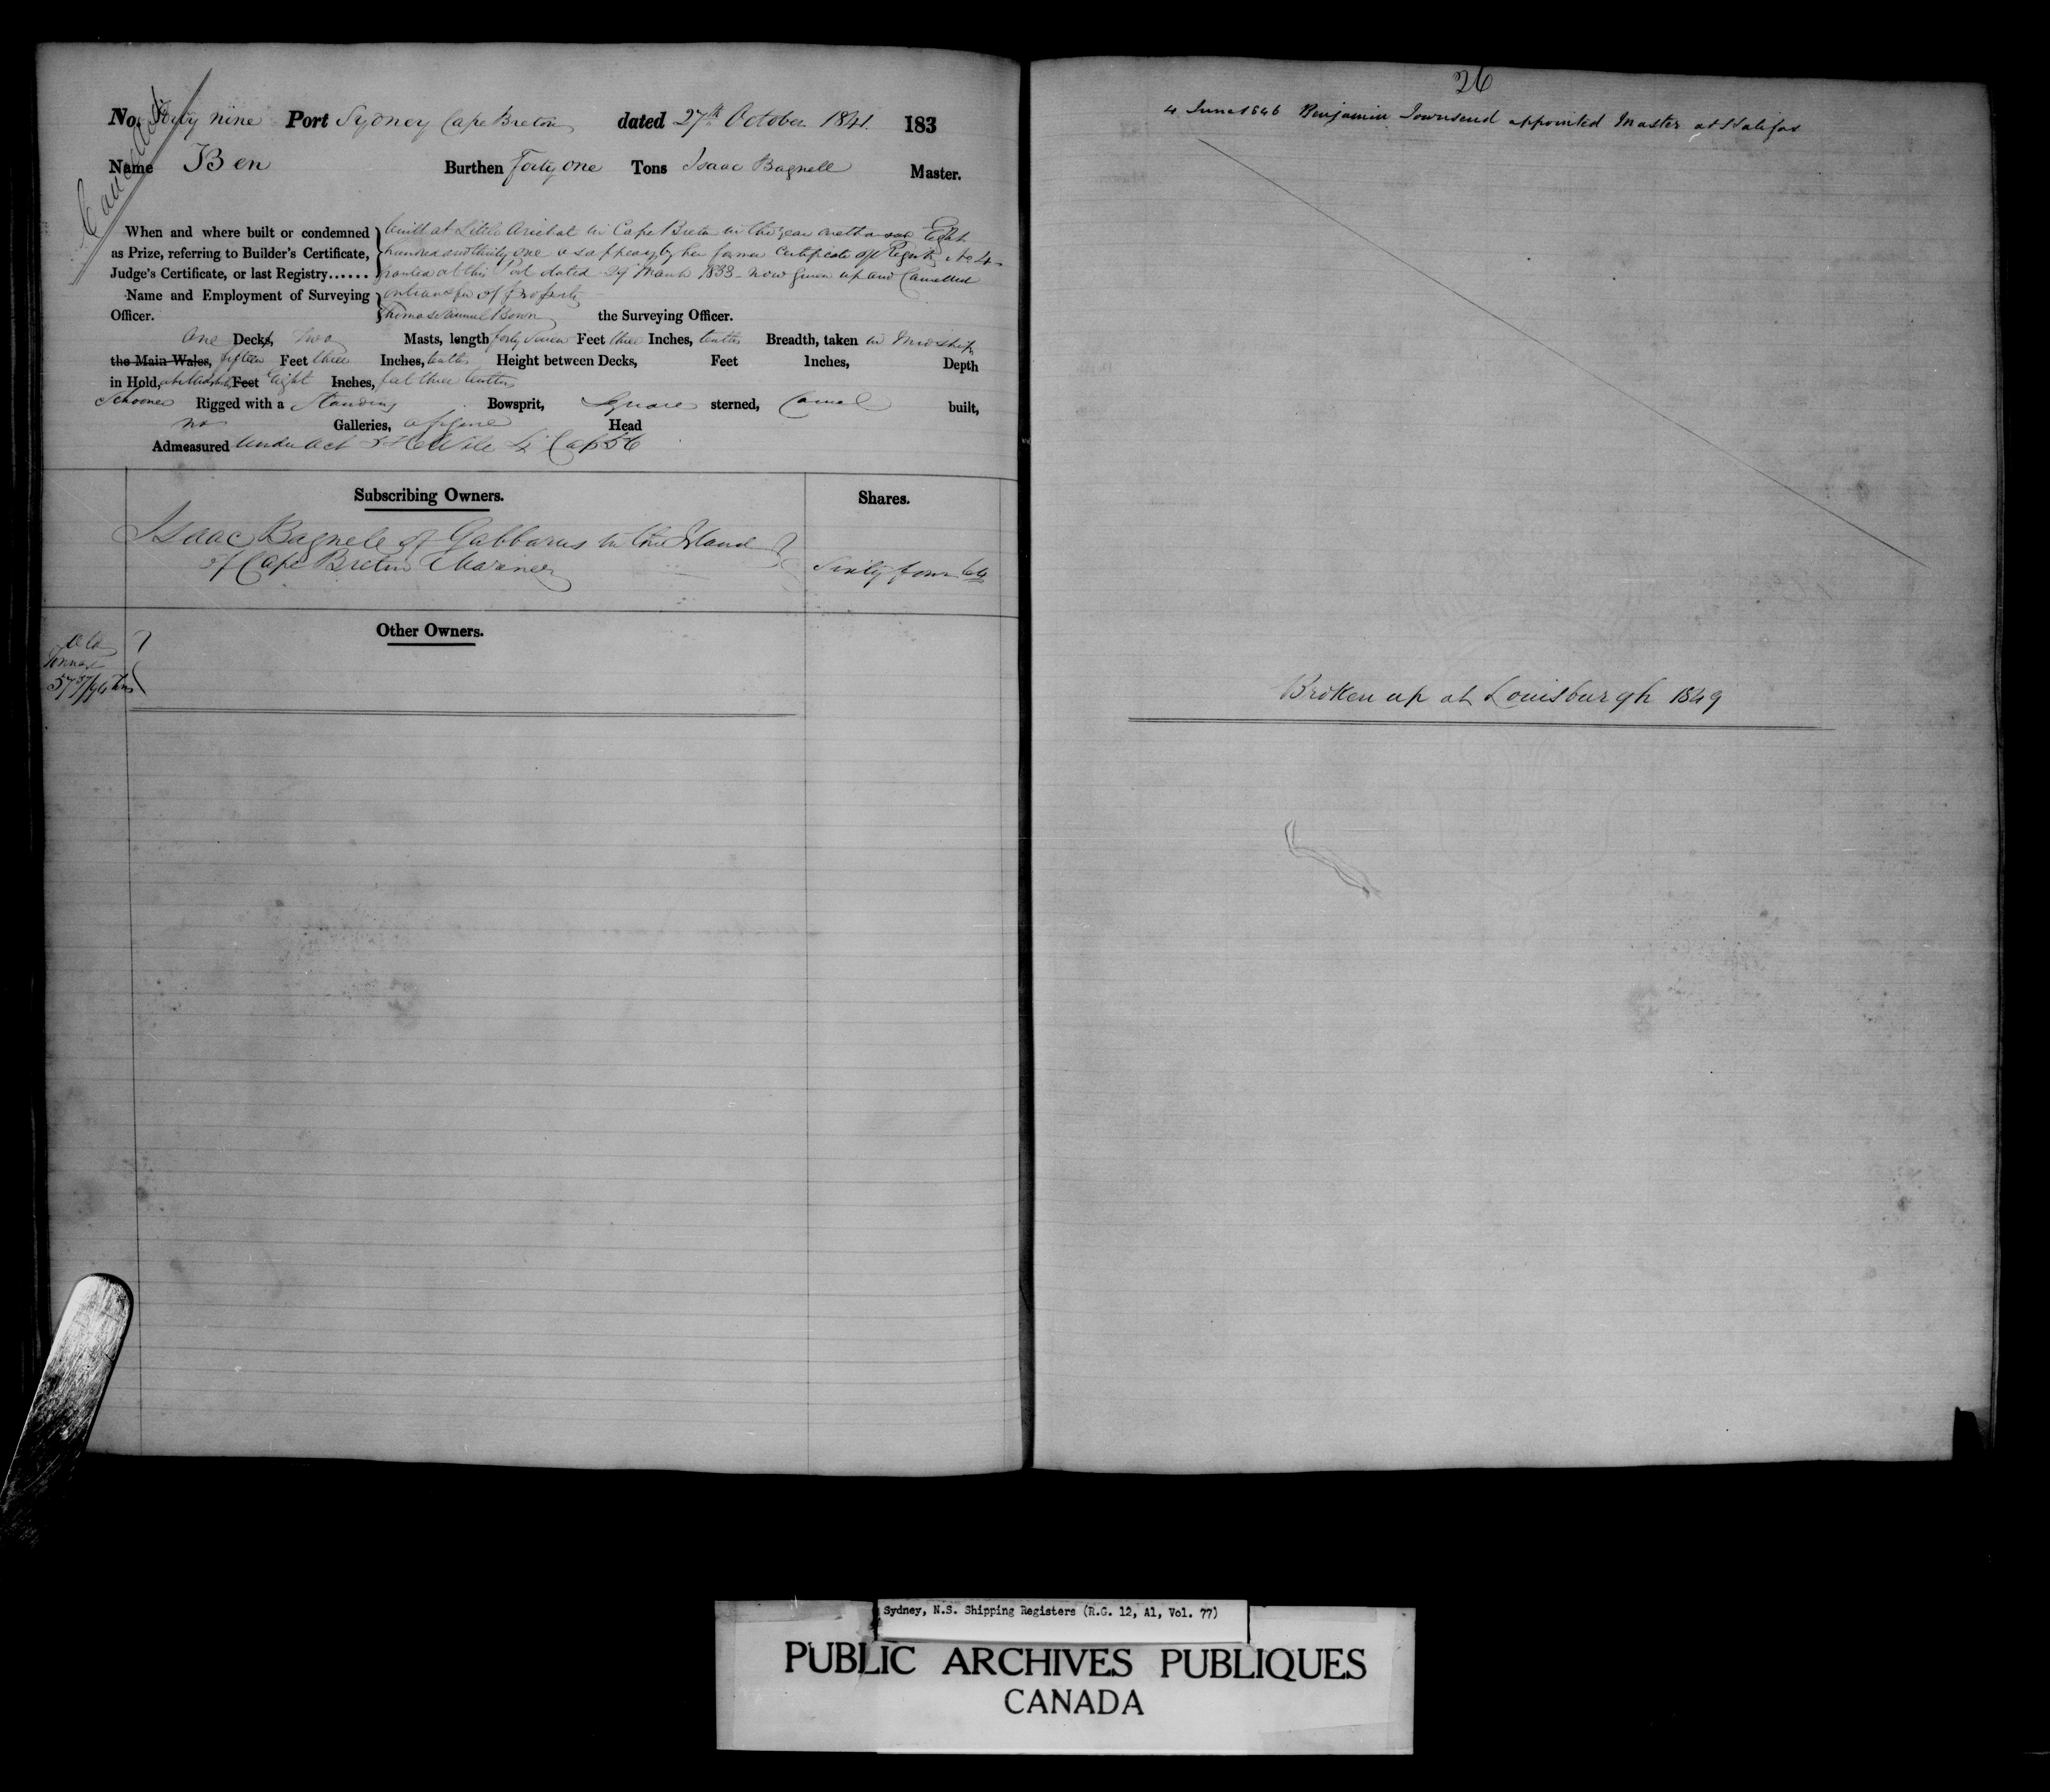 Cancelled
No. Forty nine Port Sydney Cape Breton dated 27th October 1841. 183
Name Ben Burthen Forty one Tons Isaac Bagnell Master.
When and where built or condemned as Prize, referring to Builder's Certificate, Judge's Certificate, or last Registry......
built at Little Arichat in Cape Breton in the year one thousand Eight
hundred and thirty one as appears by her former Certificate of Registry No 4
granted at this Port dated 29 March 1833 - now given up and Cancelled
on transfer of Property
Name and Employment of Surveying Officer.
Thomas Samuel Bown the Surveying Officer.
One Deck, Two Masts, length forty seven Feet three Inches, tenths Breadth, taken in Midships
the Main Wales, fifteen Feet three Inches, tenths Height between Decks, Feet Inches, Depth
in Hold, at Midships Feet Eight Inches, feet three tenths
Schooner Rigged with a Standing Bowsprit, Square sterned, Carvel built,
no Galleries, Head
Admeasured Under Act 5 & 6 Wile 4 Cap 56
Subscribing Owners. Shares.
Isaac Bagnell of Gabbarus in the Island
of Cape Breton Mariner Sixty four 64
Other Owners.
Old
Tonnage
57 37/94 tons
26
4 June 1846 Benjamin Townsend appointed Master at Halifax
Broken up at Louisburgh 1849
Sydney, N.S. Shipping Registers (R.G. 12, A1, Vol. 77)
PUBLIC ARCHIVES PUBLIQUES
CANADA